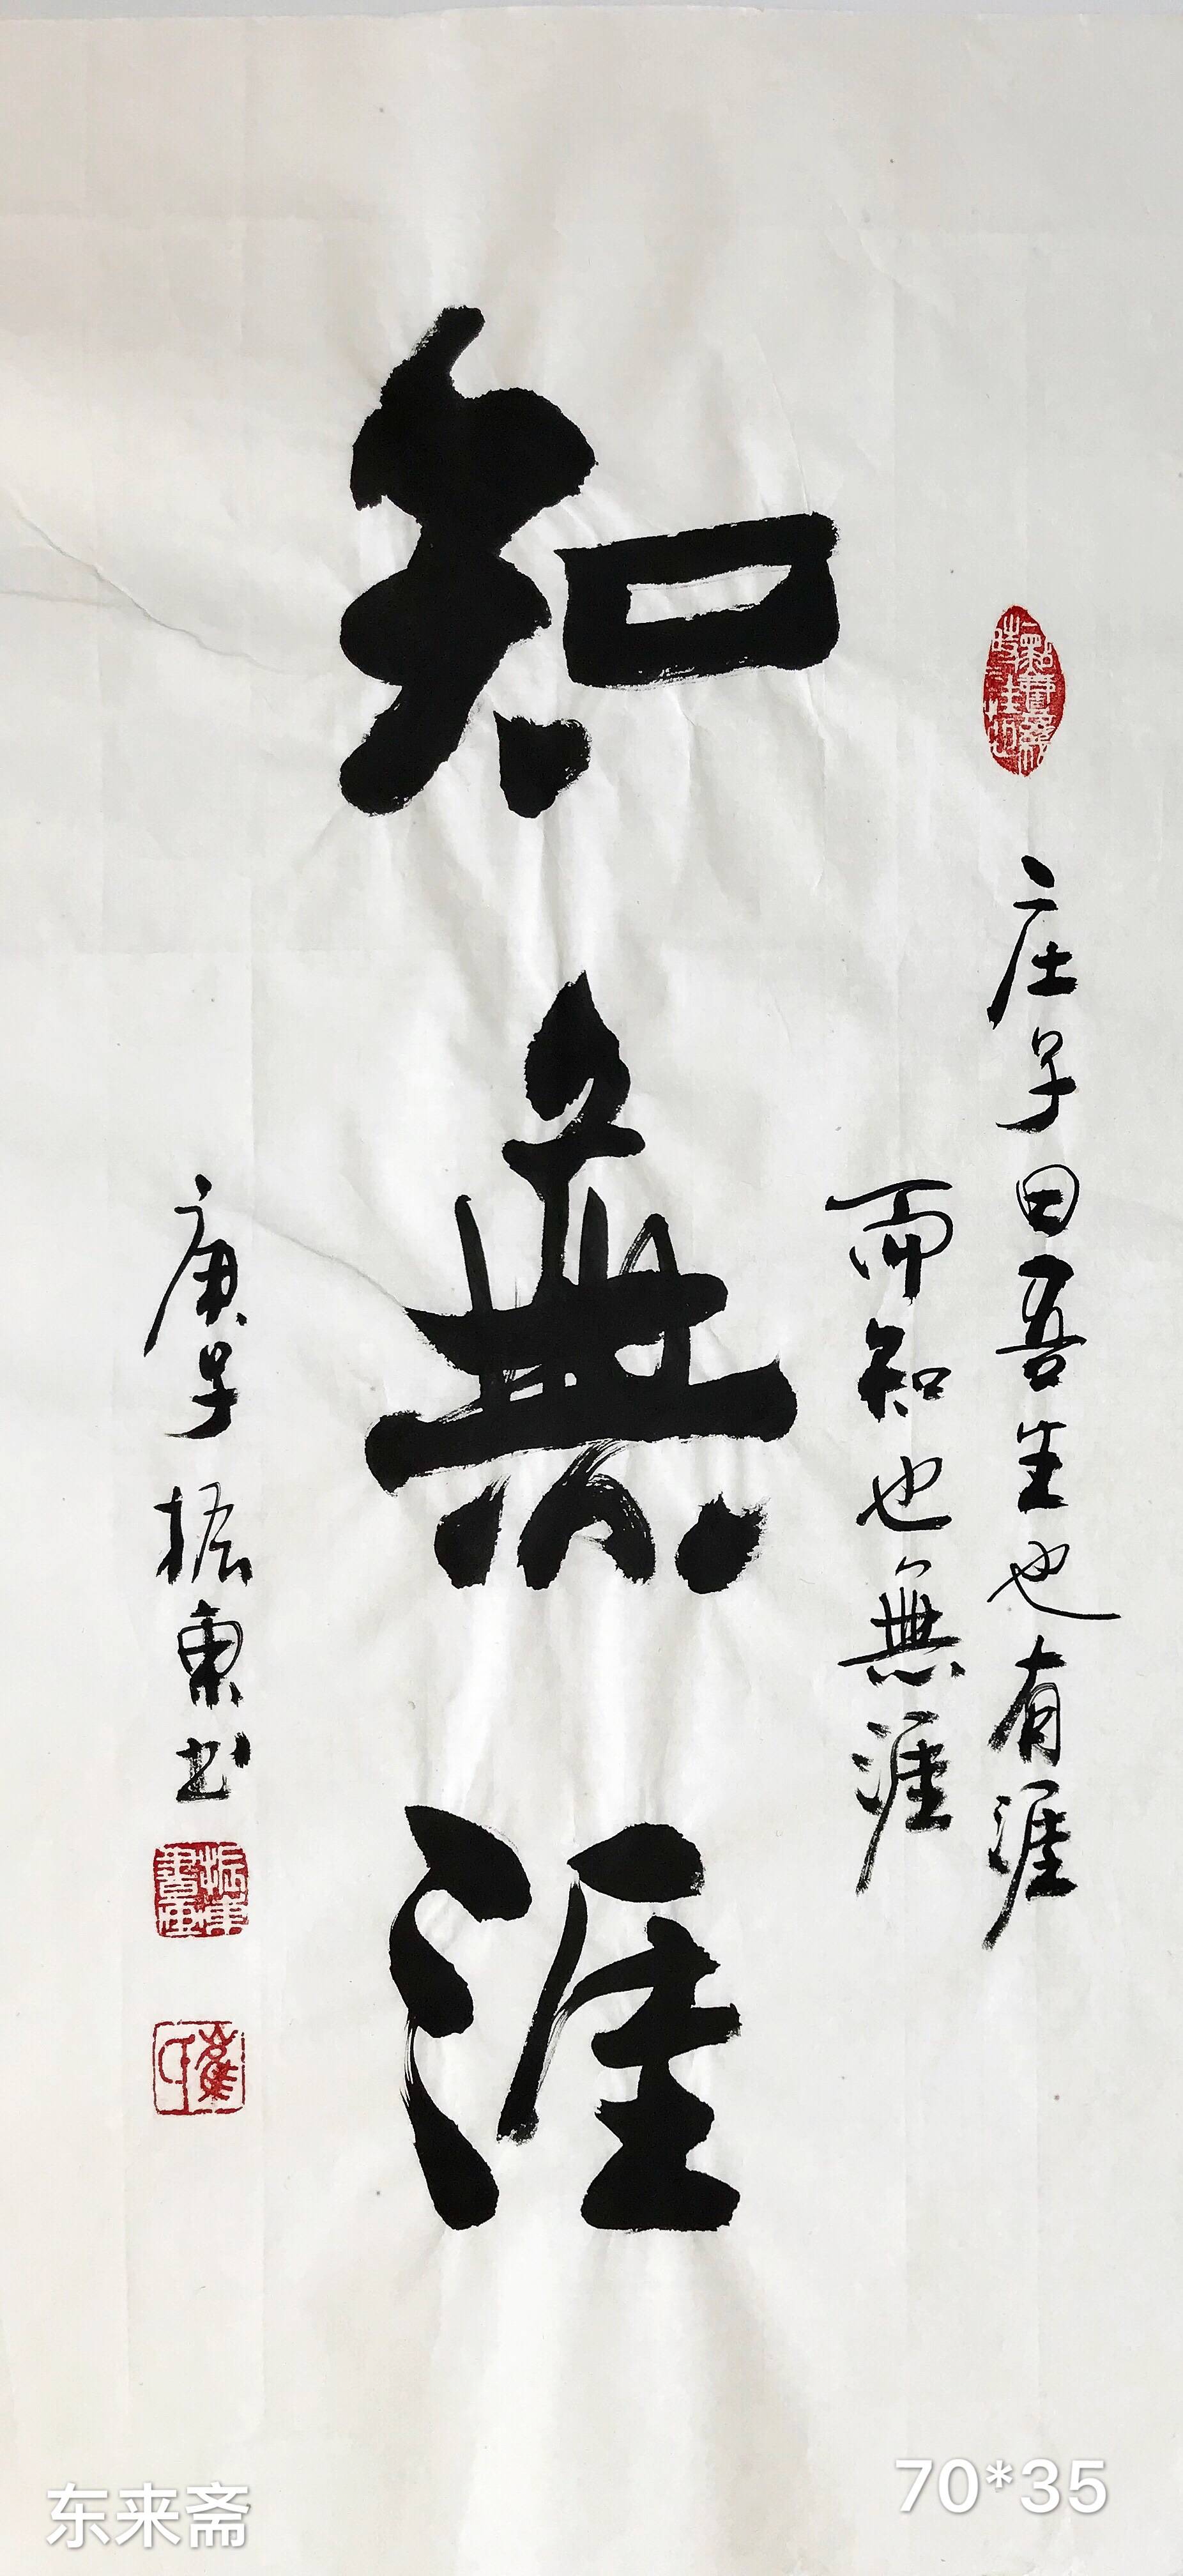 庄子曰吾生也有涯
而知也無涯
知無涯
庚子振東书
东来斋
70*35